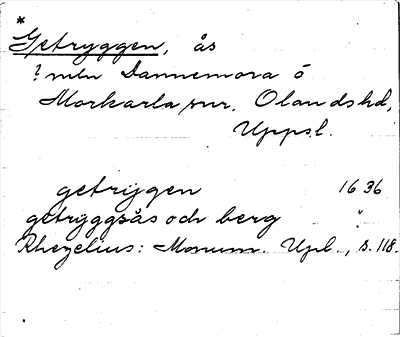 *
Getryggen, ås
? mln Dannemora o
Morkarla snr, Olandshd,
Uppsl.
getrÿgen 1636
getrÿggsås och berg "
Rhezelius: Monum. Upl., s. 118.